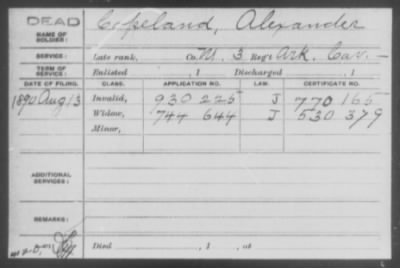 DEAD Copeland, Alexander
NAME OF SOLDIER:
SERVICE: Late rank, Co. M, 3 Reg't Ark. Cav.
TERM OF SERVICE: Enlisted , 1 Discharged , 1
DATE OF FILING. CLASS. APPLICATION NO. LAW. CERTIFICATE NO.
1890 Aug 13 Invalid, 930 225 J 770 165
Widow, 744 644 J 530 379
Minor,
ADDITIONAL SERVICES:
REMARKS:
Died , 1 , at